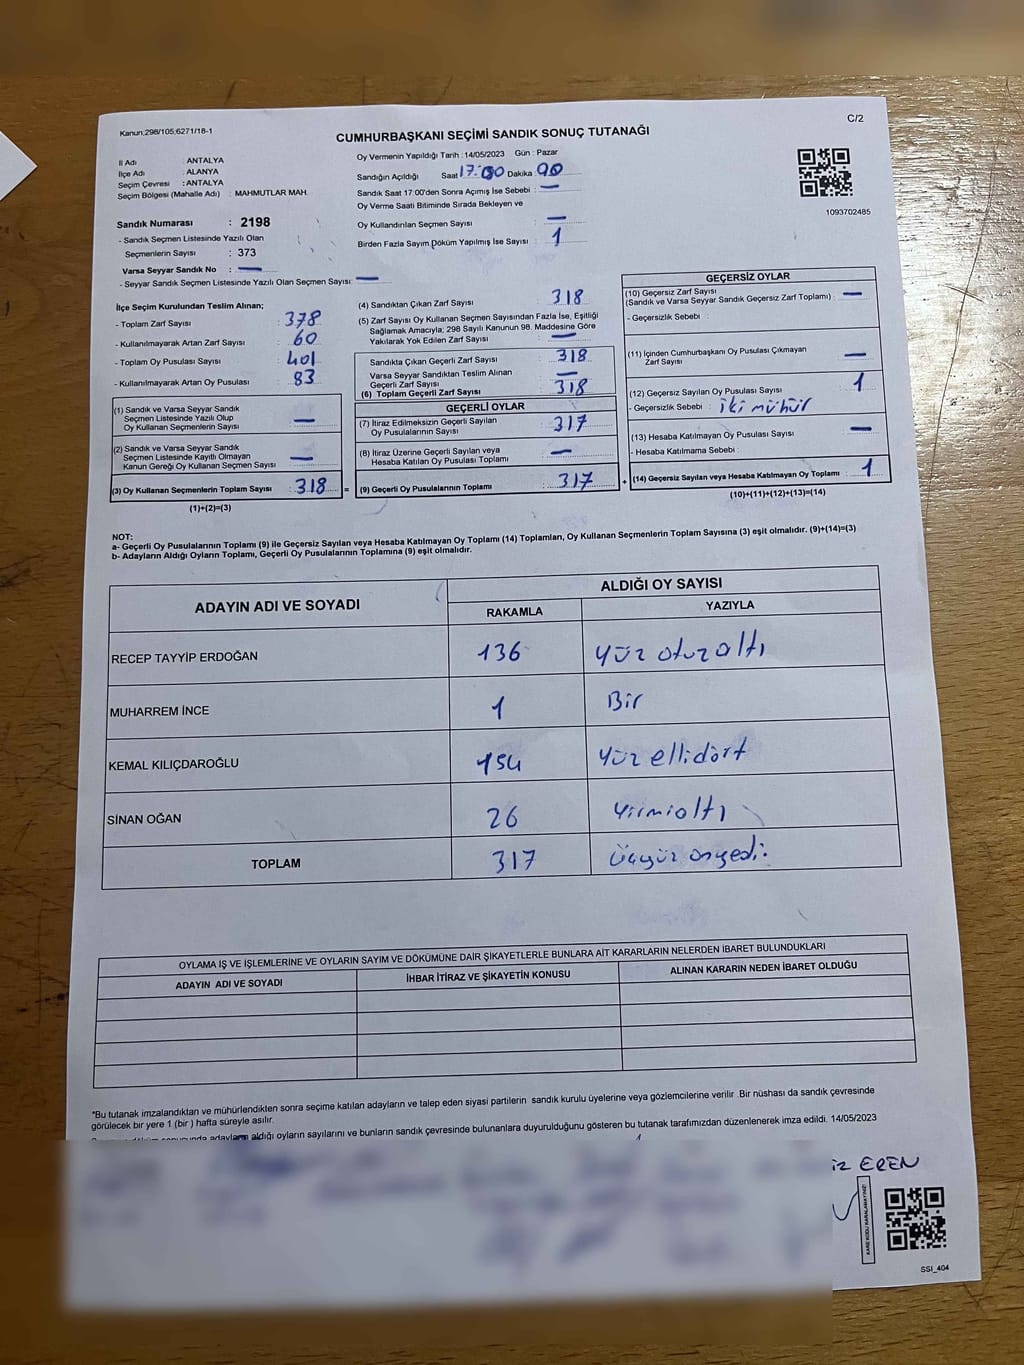 Kanun:298/105;6271/18-1
C/2
CUMHURBAŞKANI SEÇİMİ SANDIK SONUÇ TUTANAĞI
İl Adı : ANTALYA
İlçe Adı : ALANYA
Seçim Çevresi : ANTALYA
Seçim Bölgesi (Mahalle Adı) : MAHMUTLAR MAH.
Sandık Numarası : 2198
- Sandık Seçmen Listesinde Yazılı Olan
Seçmenlerin Sayısı : 373
Varsa Seyyar Sandık No : —
- Seyyar Sandık Seçmen Listesinde Yazılı Olan Seçmen Sayısı: —
Oy Vermenin Yapıldığı Tarih :14/05/2023 Gün : Pazar
Sandığın Açıldığı Saat 17:00 Dakika
Sandık Saat 17:00'den Sonra Açımış İse Sebebi : —
Oy Verme Saati Bitiminde Sırada Bekleyen ve
Oy Kullandırılan Seçmen Sayısı : —
Birden Fazla Sayım Döküm Yapılmış İse Sayısı : 1
1093702485
İlçe Seçim Kurulundan Teslim Alınan;
- Toplam Zarf Sayısı : 378
- Kullanılmayarak Artan Zarf Sayısı : 60
- Toplam Oy Pusulası Sayısı : 401
- Kullanılmayarak Artan Oy Pusulası : 83
(1) Sandık ve Varsa Seyyar Sandık
Seçmen Listesinde Yazılı Olup
Oy Kullanan Seçmenlerin Sayısı : —
(2) Sandık ve Varsa Seyyar Sandık
Seçmen Listesinde Kayıtlı Olmayan
Kanun Gereği Oy Kullanan Seçmen Sayısı : —
(3) Oy Kullanan Seçmenlerin Toplam Sayısı : 318 =
(1)+(2)=(3)
(4) Sandıktan Çıkan Zarf Sayısı : 318
(5) Zarf Sayısı Oy Kullanan Seçmen Sayısından Fazla İse, Eşitliği
Sağlamak Amacıyla; 298 Sayılı Kanunun 98. Maddesine Göre
Yakılarak Yok Edilen Zarf Sayısı : —
Sandıkta Çıkan Geçerli Zarf Sayısı : 318
Varsa Seyyar Sandıktan Teslim Alınan
Geçerli Zarf Sayısı : —
(6) Toplam Geçerli Zarf Sayısı : 318
GEÇERLİ OYLAR
(7) İtiraz Edilmeksizin Geçerli Sayılan
Oy Pusulalarının Sayısı : 317
(8) İtiraz Üzerine Geçerli Sayılan veya
Hesaba Katılan Oy Pusulası Toplamı : —
(9) Geçerli Oy Pusulalarının Toplamı : 317 +
GEÇERSİZ OYLAR
(10) Geçersiz Zarf Sayısı
(Sandık ve Varsa Seyyar Sandık Geçersiz Zarf Toplamı) : —
- Geçersizlik Sebebi :
(11) İçinden Cumhurbaşkanı Oy Pusulası Çıkmayan
Zarf Sayısı : —
(12) Geçersiz Sayılan Oy Pusulası Sayısı : 1
- Geçersizlik Sebebi : iki mühür
(13) Hesaba Katılmayan Oy Pusulası Sayısı : —
- Hesaba Katılmama Sebebi :
(14) Geçersiz Sayılan veya Hesaba Katılmayan Oy Toplamı : 1
(10)+(11)+(12)+(13)=(14)
NOT:
a- Geçerli Oy Pusulalarının Toplamı (9) ile Geçersiz Sayılan veya Hesaba Katılmayan Oy Toplamı (14) Toplamları, Oy Kullanan Seçmenlerin Toplam Sayısına (3) eşit olmalıdır. (9)+(14)=(3)
b- Adayların Aldığı Oyların Toplamı, Geçerli Oy Pusulalarının Toplamına (9) eşit olmalıdır.
ADAYIN ADI VE SOYADI ALDIĞI OY SAYISI
RAKAMLA YAZIYLA
RECEP TAYYİP ERDOĞAN 136 Yüz otuz altı
MUHARREM İNCE 1 Bir
KEMAL KILIÇDAROĞLU 154 Yüz ellidört
SİNAN OĞAN 26 Yirmialtı
TOPLAM 317 Üçyüz onyedi.
OYLAMA İŞ VE İŞLEMLERİNE VE OYLARIN SAYIM VE DÖKÜMÜNE DAİR ŞİKAYETLERLE BUNLARA AİT KARARLARIN NELERDEN İBARET BULUNDUKLARI
ADAYIN ADI VE SOYADI İHBAR İTİRAZ VE ŞİKAYETİN KONUSU ALINAN KARARIN NEDEN İBARET OLDUĞU
*Bu tutanak imzalandıktan ve mühürlendikten sonra seçime katılan adayların ve talep eden siyasi partilerin sandık kurulu üyelerine veya gözlemcilerine verilir. Bir nüshası da sandık çevresinde
görülecek bir yere 1 (bir) hafta süreyle asılır.
adayların aldığı oyların sayılarını ve bunların sandık çevresinde bulunanlara duyurulduğunu gösteren bu tutanak tarafımızdan düzenlenerek imza edildi. 14/05/2023
iz EREN
KARE KODU KARALAMAYINIZ!
SSI_404